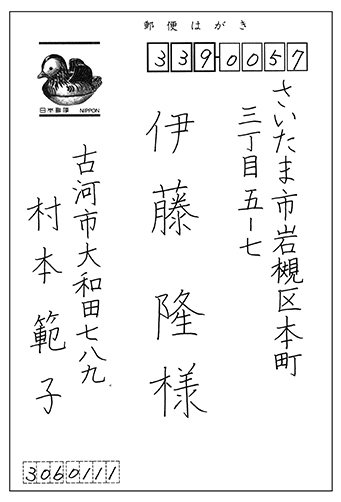 郵便はがき
339-0057
日本郵便 NIPPON
さいたま市岩槻区本町
三丁目五ー七
伊藤 隆様
古河市大和田七八九
村本範子
3060111